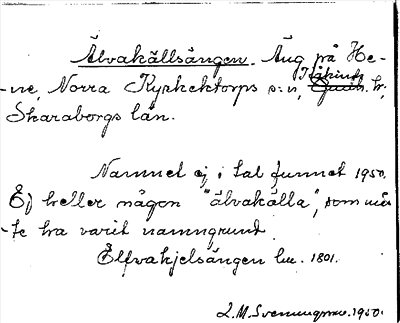 Älvakällsängen. Äng på He-
-ne, Norra Kyrketorps s:n, Kåkinds h:
Skaraborgs län.
Namnet ej i tal funnet 1950.
Ej heller någon "älvakälla", som mås-
-te ha varit namngrund.
Elfvakjelsängen lm. 1801.
1950.